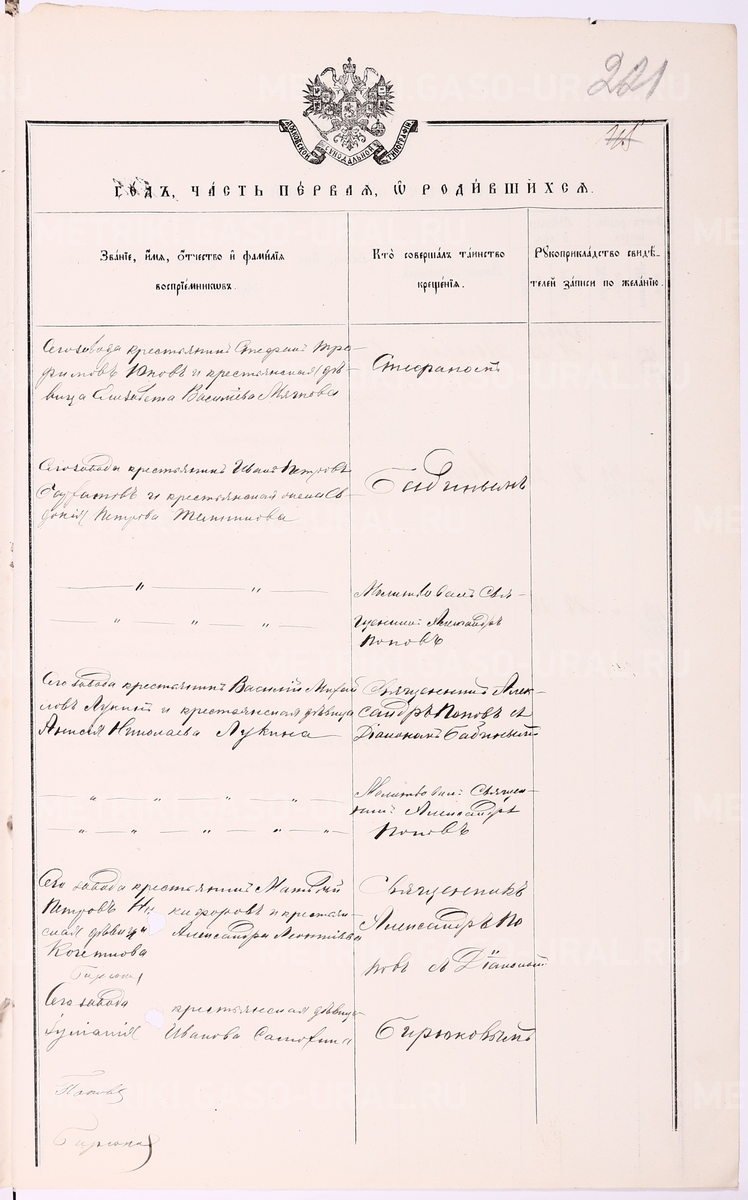 221
МОСКОВСКОЙ СѴНОДАЛЬНОЙ ТИПОГРАФІИ
годъ, часть пе́рвая, ѡ҆ роди́вшихся.
Зва́нїе, и҆́мя, ѻ҆́тчество и҆ фами́лїя
воспрїе́мникѡвъ.
Кто̀ соверша́лъ та́инство
креще́нїя.
Рꙋкоприкла́дство свидѣ́-
телей за́писи по жела́нїю.
Сего завода крестьянинъ Стефанъ Тро-
фимовъ Поповъ и крестьянская дѣ-
вица Елизавета Васильева Мягкова
Стефаномъ
Сего завода крестьянинъ Иванъ Петровъ
и крестьянская жена Ев-
докія Петрова
Бабинымъ
Молитвовалъ Свя-
щенникъ Александръ
Поповъ
Сего завода крестьянинъ Василій Михай
ловъ Лукинъ и крестьянская дѣвица
Анисія Николаева Лукина
Священникъ Алек-
сандръ Поповъ съ
Діакономъ Бабинымъ
Молитвовалъ Священ-
никъ Александръ
Поповъ
Сего завода крестьянинъ Матвѣй
Петровъ Никифоровъ и крестьян-
ская дѣвица Александра Леонтьева
Священникъ
Александръ По
повъ съ Діакономъ
Сего завода крестьянская дѣвица
Іуліанія Иванова
Бирюковымъ
Поповъ
Бирюковъ
METRIKI.GASO-URAL.RU